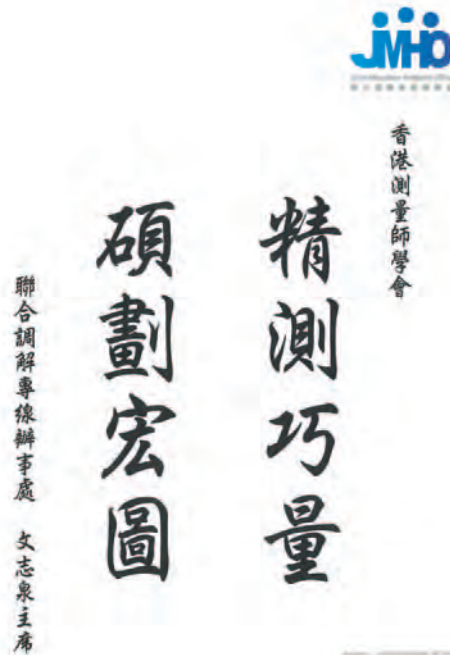 JMHO
香港測量師學會
精測巧量
碩劃宏圖
聯合調解專線辦事處 文志泉主席